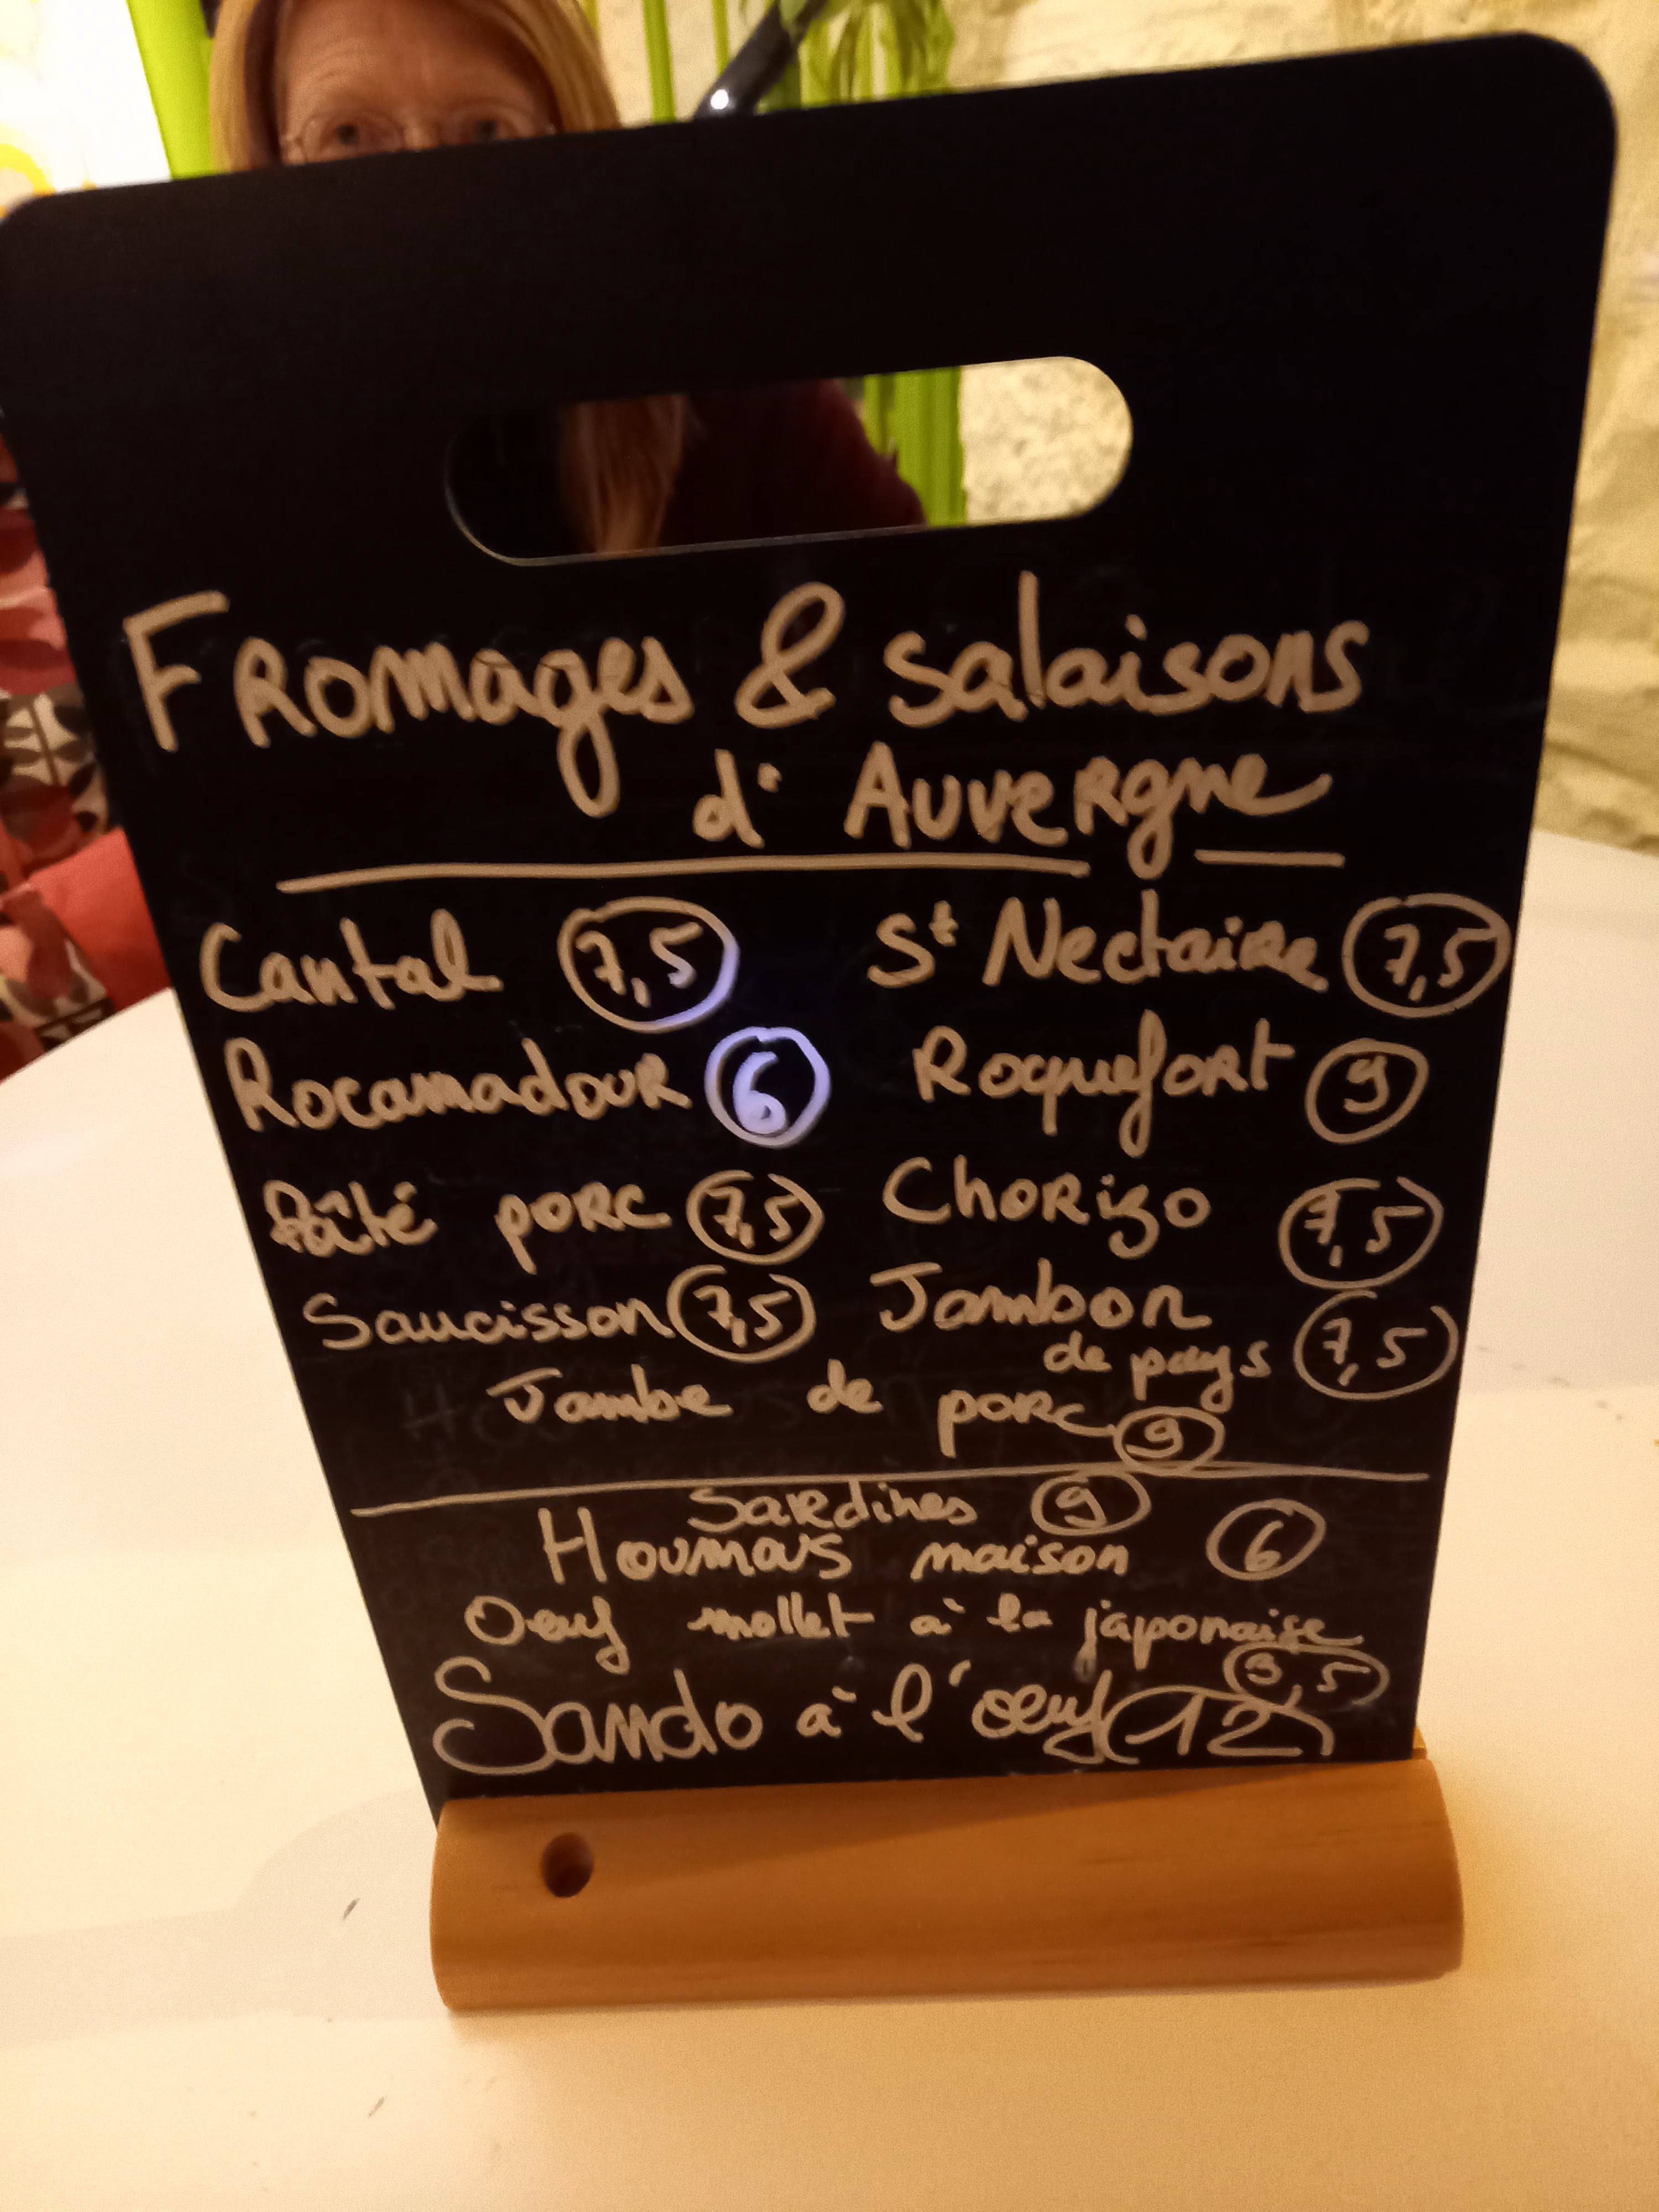 Fromages & salaisons
d'Auvergne
Cantal 7,5 St Nectaire 7,5
Rocamadour 6 Roquefort 9
Pâté porc 7,5 Chorizo 7,5
Saucisson 7,5 Jambon
de pays 7,5
Jambe de porc 9
Sardines 9
Houmous maison 6
Oeuf mollet à la japonaise
3,5
Sando à l'oeuf 12